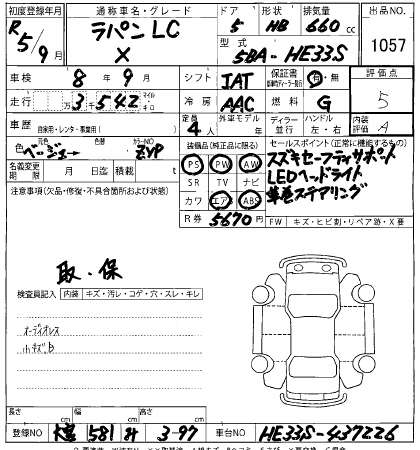 初度登録年月 通称車名・グレード ドア 形状 排気量 出品NO.
R5/9月 ラパン LC X 5 HB 660cc 1057
型式 5BA-HE33S
車検 8年9月 シフト IAT 保証書 有・無 評価点 5
走行 3542 マイル キロ 冷房 AAC 燃料 G 内装評価 A
車歴 自家用・レンタ・事業用( ) 定員 4人 外車モデル 年 ディーラー 並行 ハンドル 左・右
色 元色 ベージュ 色替 カラーNO ZVP
装備品(純正品に限る) PS PW AW SR TV ナビ カワ エアB ABS
セールスポイント(正常に機能するもの)
スズキセーフティサポート
LEDヘッドライト
革巻ステアリング
名義変更期限 月 日迄 積載 t
注意事項(欠品・修復・不具合箇所および状態)
R券 5670円
FW キズ・ヒビ割・リペア跡・X要
取・保
検査員記入 内装 キズ・汚レ・コゲ・穴・スレ・キレ
オーディオレス
小キズ
長さ cm 幅 cm 高さ cm
登録NO 581 3-97 車台NO HE33S-437226